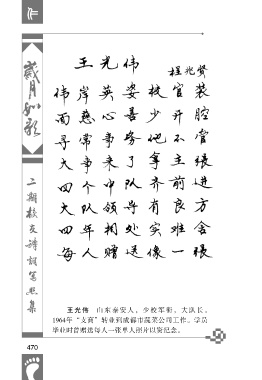 岁月如歌
二期校友诗词写照集
王光伟
程兆贤
伟岸英姿校官装
面慈心善少开腔
寻常事务他不管
大事来了拿主张
四个中队齐前进
大队领导有良方
四年相处实难舍
每人赠送像一张
王光伟 山东泰安人，少校军衔，大队长。
1964年“支商”转业到成都市蔬菜公司工作。学员
毕业时曾赠送每人一张单人照片以资纪念。
470